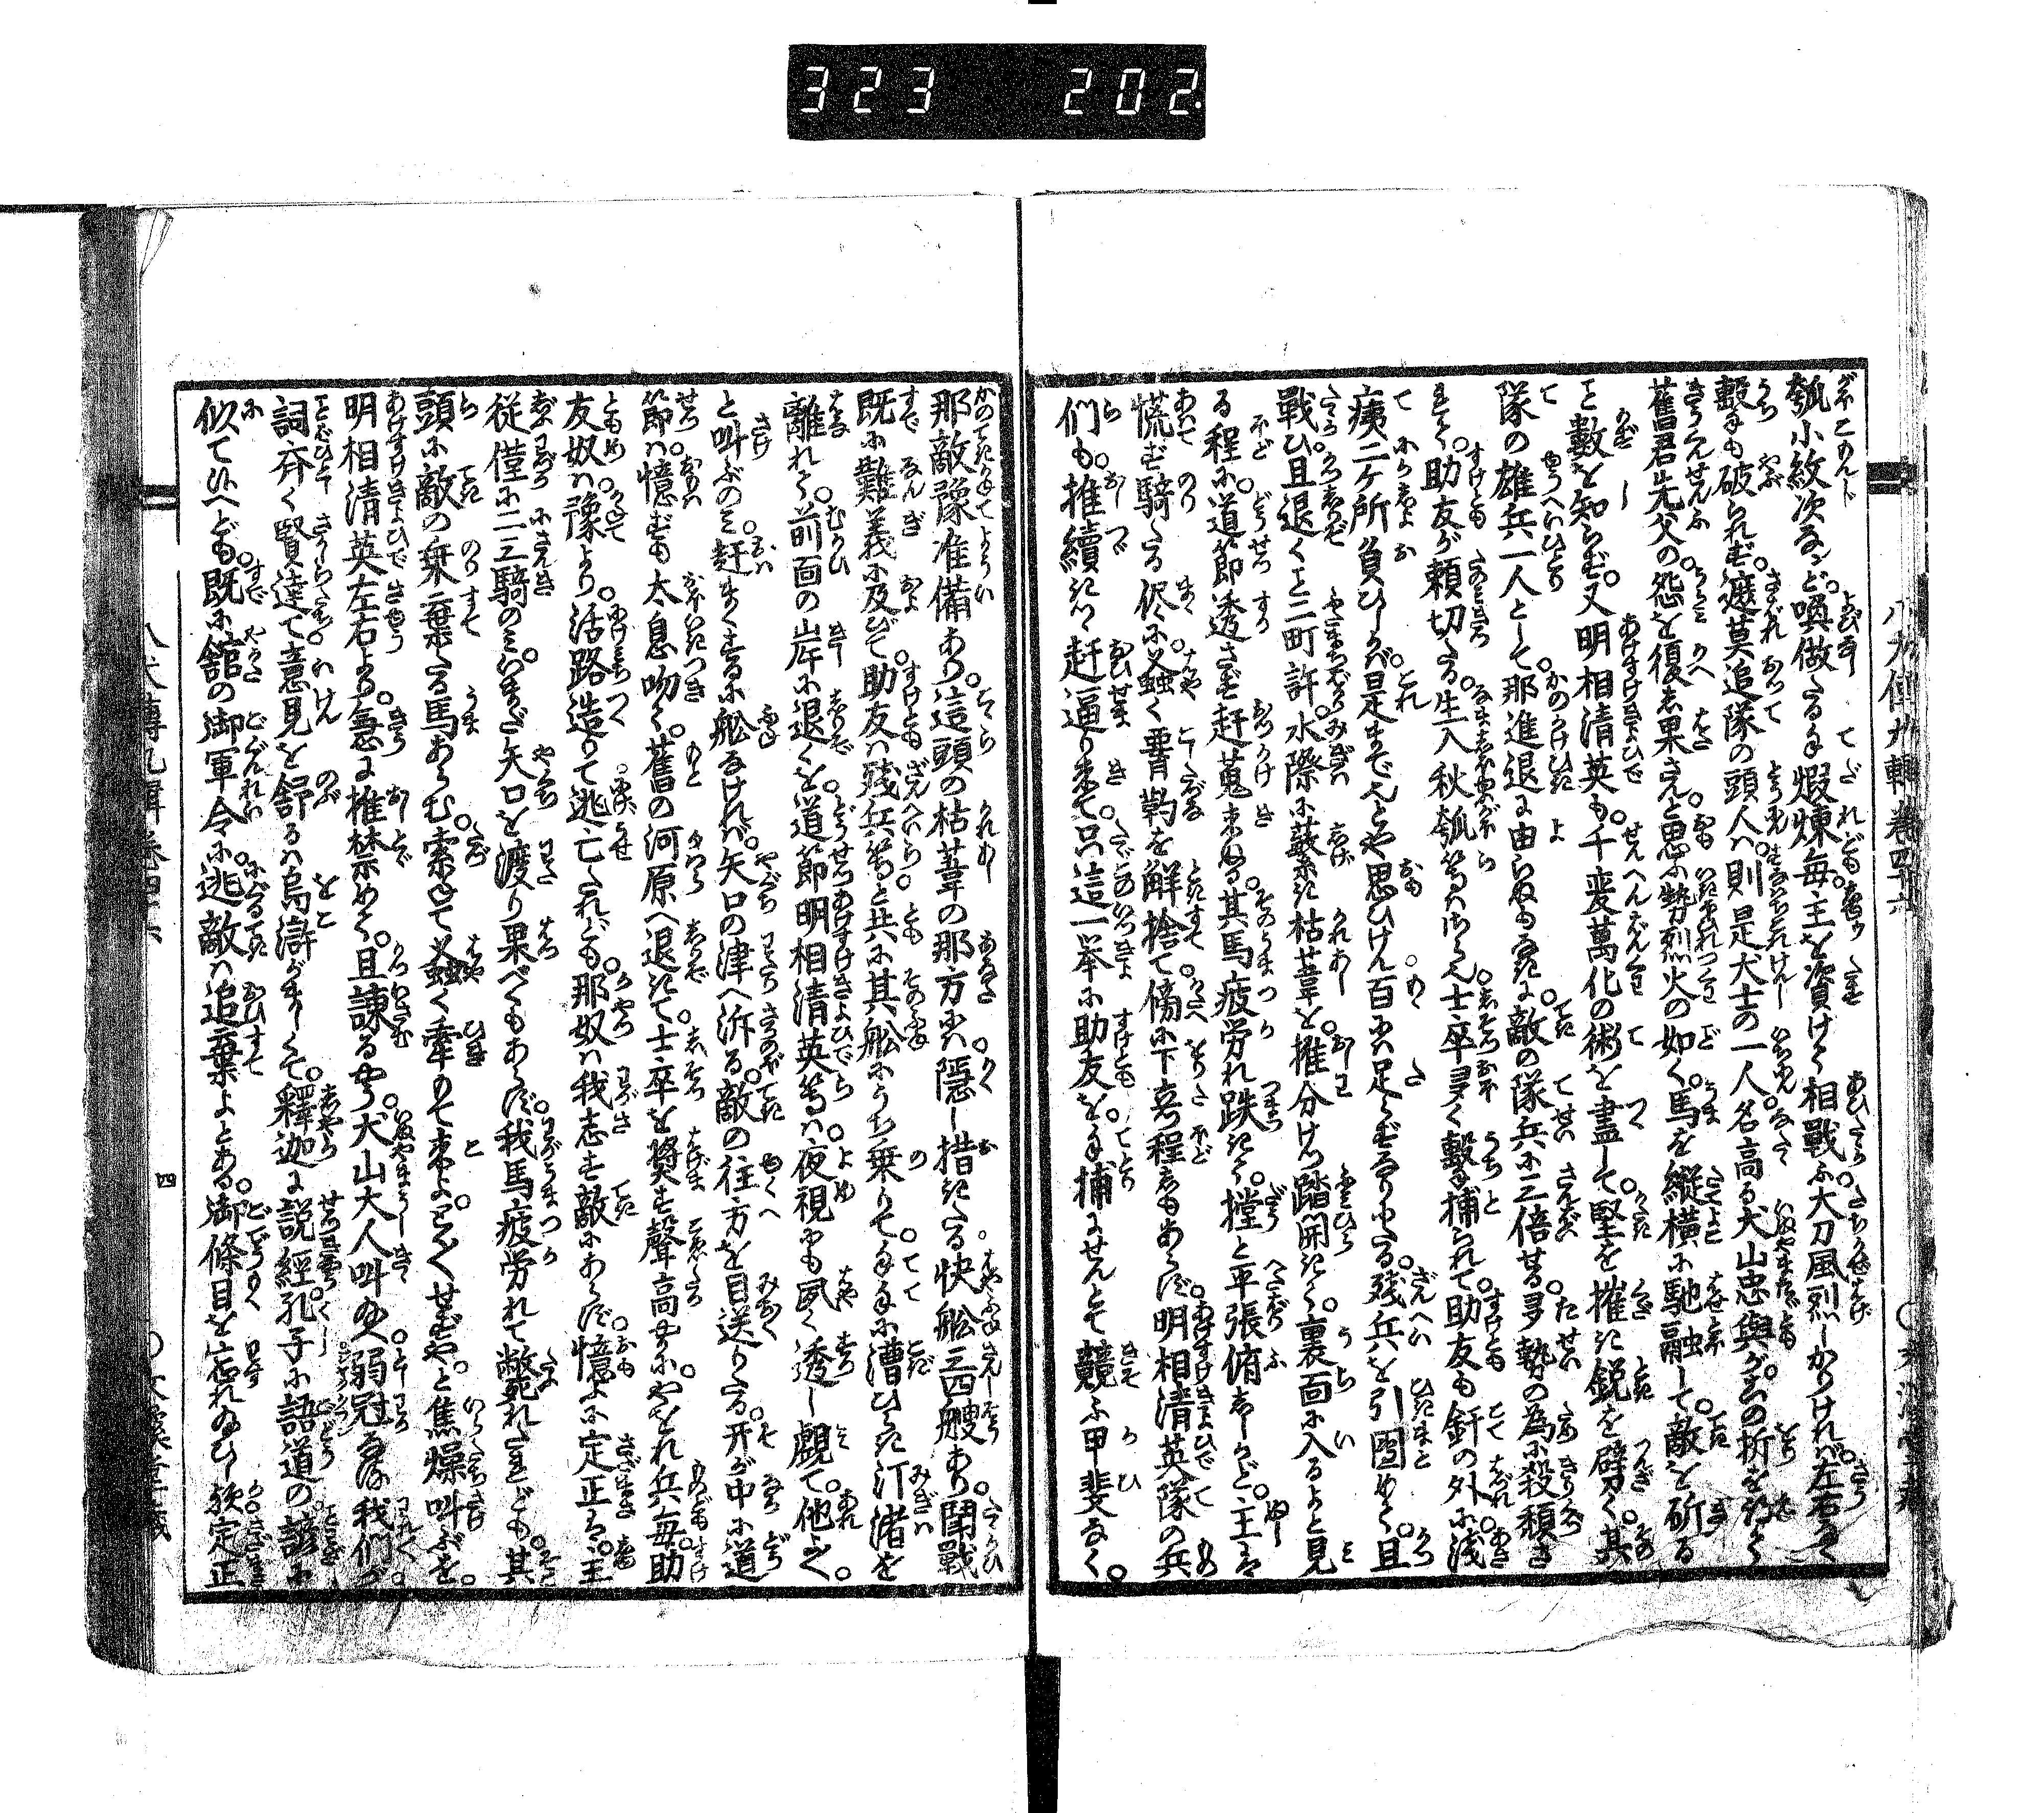 323 202
瓠小紋次なンど。喚做したる手煆煉每。主を資けて相戰ふ大刀風烈しかりければ。左右なく
擊も破られず。遮莫追隊の頭人は。則是犬士の一人。名高き犬山忠與が。その折をりて
舊君先父の怨を復し果さんと思ふ勢烈火の如く。馬を縱橫に馳融して。敵を斫る
こと數を知らず。又明相清英も。千変萬化の術を盡して。堅を摧き銳を劈く。其
隊の雄兵一人として。那進退に由らぬもなきに。敵の隊兵に三倍せる。多勢の為に殺頽さ
れて。助友が賴切たる。生入秋瓠等はさらん士卒多く擊捕られて。助友も釬の外に淺
痍二ケ所負ひしかば。是までとや思ひけん百に足らずなりにたる。殘兵を引圓めて。且
戰ひ且退くこと二町許。水際に蕀き枯葦を。推分けつ踏開きて。裏面に入るよと見
る程に。道節透さず赶蒐來ぬる。其馬疲労れ跌きて。撑と平張俯しかど。主は
慌ず騎たる侭に。蝨く轡靮を解捨て。傍に下立程もあらず。明相清英隊の兵
們も。推續きつゝ赶逼り來て。只這一挙に助友を。手捕にせんとて競ふ甲斐なく。
八犬傳九輯卷四十六
那敵豫准備あり。這頭の枯葦の那方には。隱し措きたる快船三四艘あり。鬪戰
既に難義に及びて。助友は殘兵等と共に其船にうち乘りて。手手に漕ひらき汀渚を
離れて。前面の岸に退くを。道節明相清英等は。夜視にも夙く透し覷て。他々。
と叫ぶのみ。赶まくするに船なければ。矢口の津へ泝る。敵の往方を目送りたる。开が中に道
節は。憶ずも太息吻て。舊の河原へ退きて。士卒を奬す聲高やかに。やをれ兵每。助
友奴は豫より。活路造りて逃亡たれども。那奴は我志す敵にあらず。憶ふに定正は。主
從僅に二三騎のみ。いまだ矢口を渡り果べくもあらず。我馬疲労れて斃死れたれども。其
頭に敵の乘棄たる馬あらむ。索ねて蝨く牽もて來よ。とくせずや。と焦燥叫ぶを。
明相清英左右より。急に推禁めて。且諫るやう。犬山大人叫ひ。弱冠なる我們が
詞斉く賢達て意見を舒るは烏滸がましくて。釋迦に說經孔子に語道の諺に
似て侍へども。既に舘の御軍令に。迯敵は追棄よとある。御條目を忘れ給ひし歟。定正
八犬傳九輯卷四十六
四